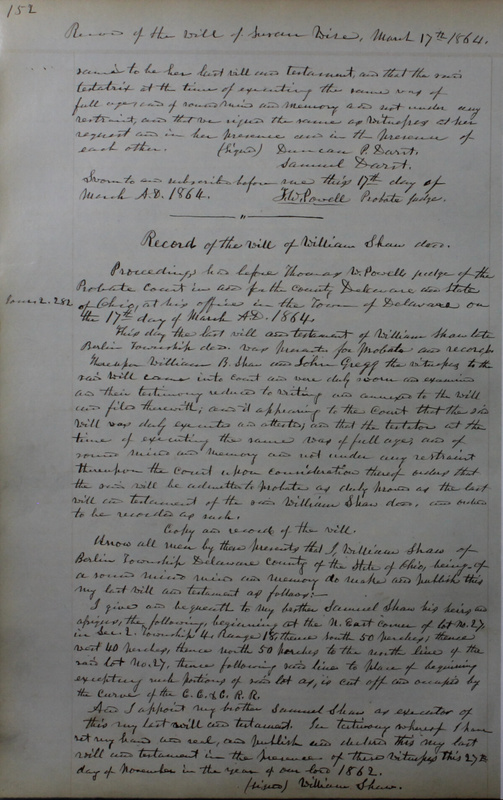 152
Record of the will of Susan Wise, March 17th 1864.
same to be her last will and testament, and that the said
testatrix at the time of executing the same was of
full age, and of sound mind and memory and not under any
restraint, and that we signed the same as witnesses at her
request and in her presence and in the presence of
each other. (Signed) Duncan P. Darst.
Samuel Darst.
Sworn to and subscribed before me this 17th day of
March A.D. 1864. T.W. Powell Probate judge.
Record of the will of William Shaw decd.
Proceedings had before Thomas W. Powell judge of the
Probate Court in and for the county Delaware and State
2. 282
of Ohio, at his office in the Town of Delaware on
the 17th day of March A.D. 1864.
This day the last will and testament of William Shaw late
Berlin Township decd. was presented for probate and record.
Thereupon William B. Shaw and John Gregg the witnesses to the
said will came into court and were duly sworn and examined
and their testimony reduced to writing and annexed to the will
and filed therewith; and it appearing to the Court that the said
will was duly executed and attested; and that the testator at the
time of executing the same was of full age, and of
sound mind and memory and not under any restraint
thereupon the court upon consideration thereof orders that
the said will be admitted to probate as duly proven as the last
will and testament of the said William Shaw decd. and ordered
to be recorded as such.
Copy and record of the will.
Know all men by these presents that I, William Shaw of
Berlin Township Delaware County of the State of Ohio, being of
a sound mind and memory do make and publish this
my last will and testament as follows:-
I give and bequeath to my brother Samuel Shaw his heirs and
assigns, the following, beginning at the N. East corner of lot No. 27,
in Sec. 2. Township 4, Range 18, thence south 50 perches, thence
west 40 perches, thence north 50 perches to the north line of the
said lot No. 27, thence following said line to place of beginning
excepting such potions of said lot as, is cut off and occupied by
the curve of the C.C.&C. R.R.
And I appoint my brother Samuel Shaw as executor of
this my last will and testament. In testimony whereof I have
set my hand and seal, and publish and declare this my last
will and testament in the presence of these witnesses this 27th
day of November in the year of our lord 1862.
(Signed) William Shaw.